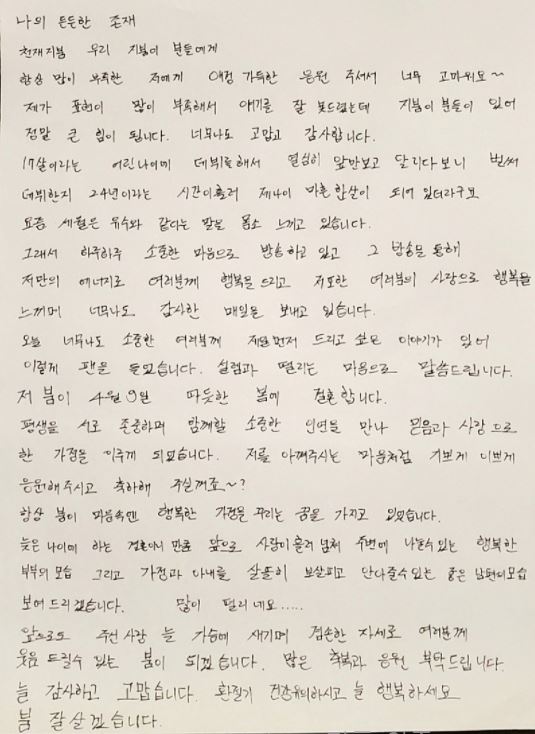 나의 든든한 존재
천재지붐 우리 지붐이 분들에게
항상 많이 부족한 저에게 애정 가득한 응원 주셔서 너무 고마워요~
제가 표현이 많이 부족해서 얘기를 잘 못드렸는데 지붐이 분들이 있어
정말 큰 힘이 됩니다. 너무나도 고맙고 감사합니다.
17살이라는 어린나이에 데뷔를해서 열심히 앞만보고 달리다보니 벌써
데뷔한지 24년이라는 시간이흘러 제나이 마흔한살이 되어 있더라구요
요즘 세월은 유수와 같다는 말을 몸소 느끼고 있습니다.
그래서 하루하루 소중한 마음으로 방송하고 있고 그 방송을 통해
저만의 에너지로 여러분께 행복을 드리고 저또한 여러분의 사랑으로 행복을
느끼며 너무나도 감사한 매일을 보내고 있습니다.
오늘 너무나도 소중한 여러분께 제일먼저 드리고 싶은 이야기가 있어
이렇게 팬을 들었습니다. 설렘과 떨리는 마음으로 말씀드립니다.
저 붐이 4월 9일 따듯한 봄에 결혼합니다.
평생을 서로 존중하며 함께할 소중한 인연을 만나 믿음과 사랑으로
한 가정을 이루게 되었습니다. 저를 아껴주시는 마음처럼 기쁘게 이쁘게
응원해주시고 축하해 주실꺼죠~?
항상 붐이 마음속엔 행복한 가정을 꾸리는 꿈을 가지고 있었습니다.
늦은 나이에 하는 결혼이니 만큼 앞으로 사랑이흘러 넘쳐 주변에 나눌수있는 행복한
부부의 모습 그리고 가정과 아내를 살뜰히 보살피고 안아줄수있는 좋은 남편의모습
보여 드리겠습니다. 많이 떨리네요.....
앞으로도 주신 사랑 늘 가슴에 새기며 겸손한 자세로 여러분께
웃음 드릴수 있는 붐이 되겠습니다. 많은 축복과 응원 부탁드립니다.
늘 감사하고 고맙습니다. 환절기 건강유의하시고 늘 행복하세요
붐 잘 살겠습니다.